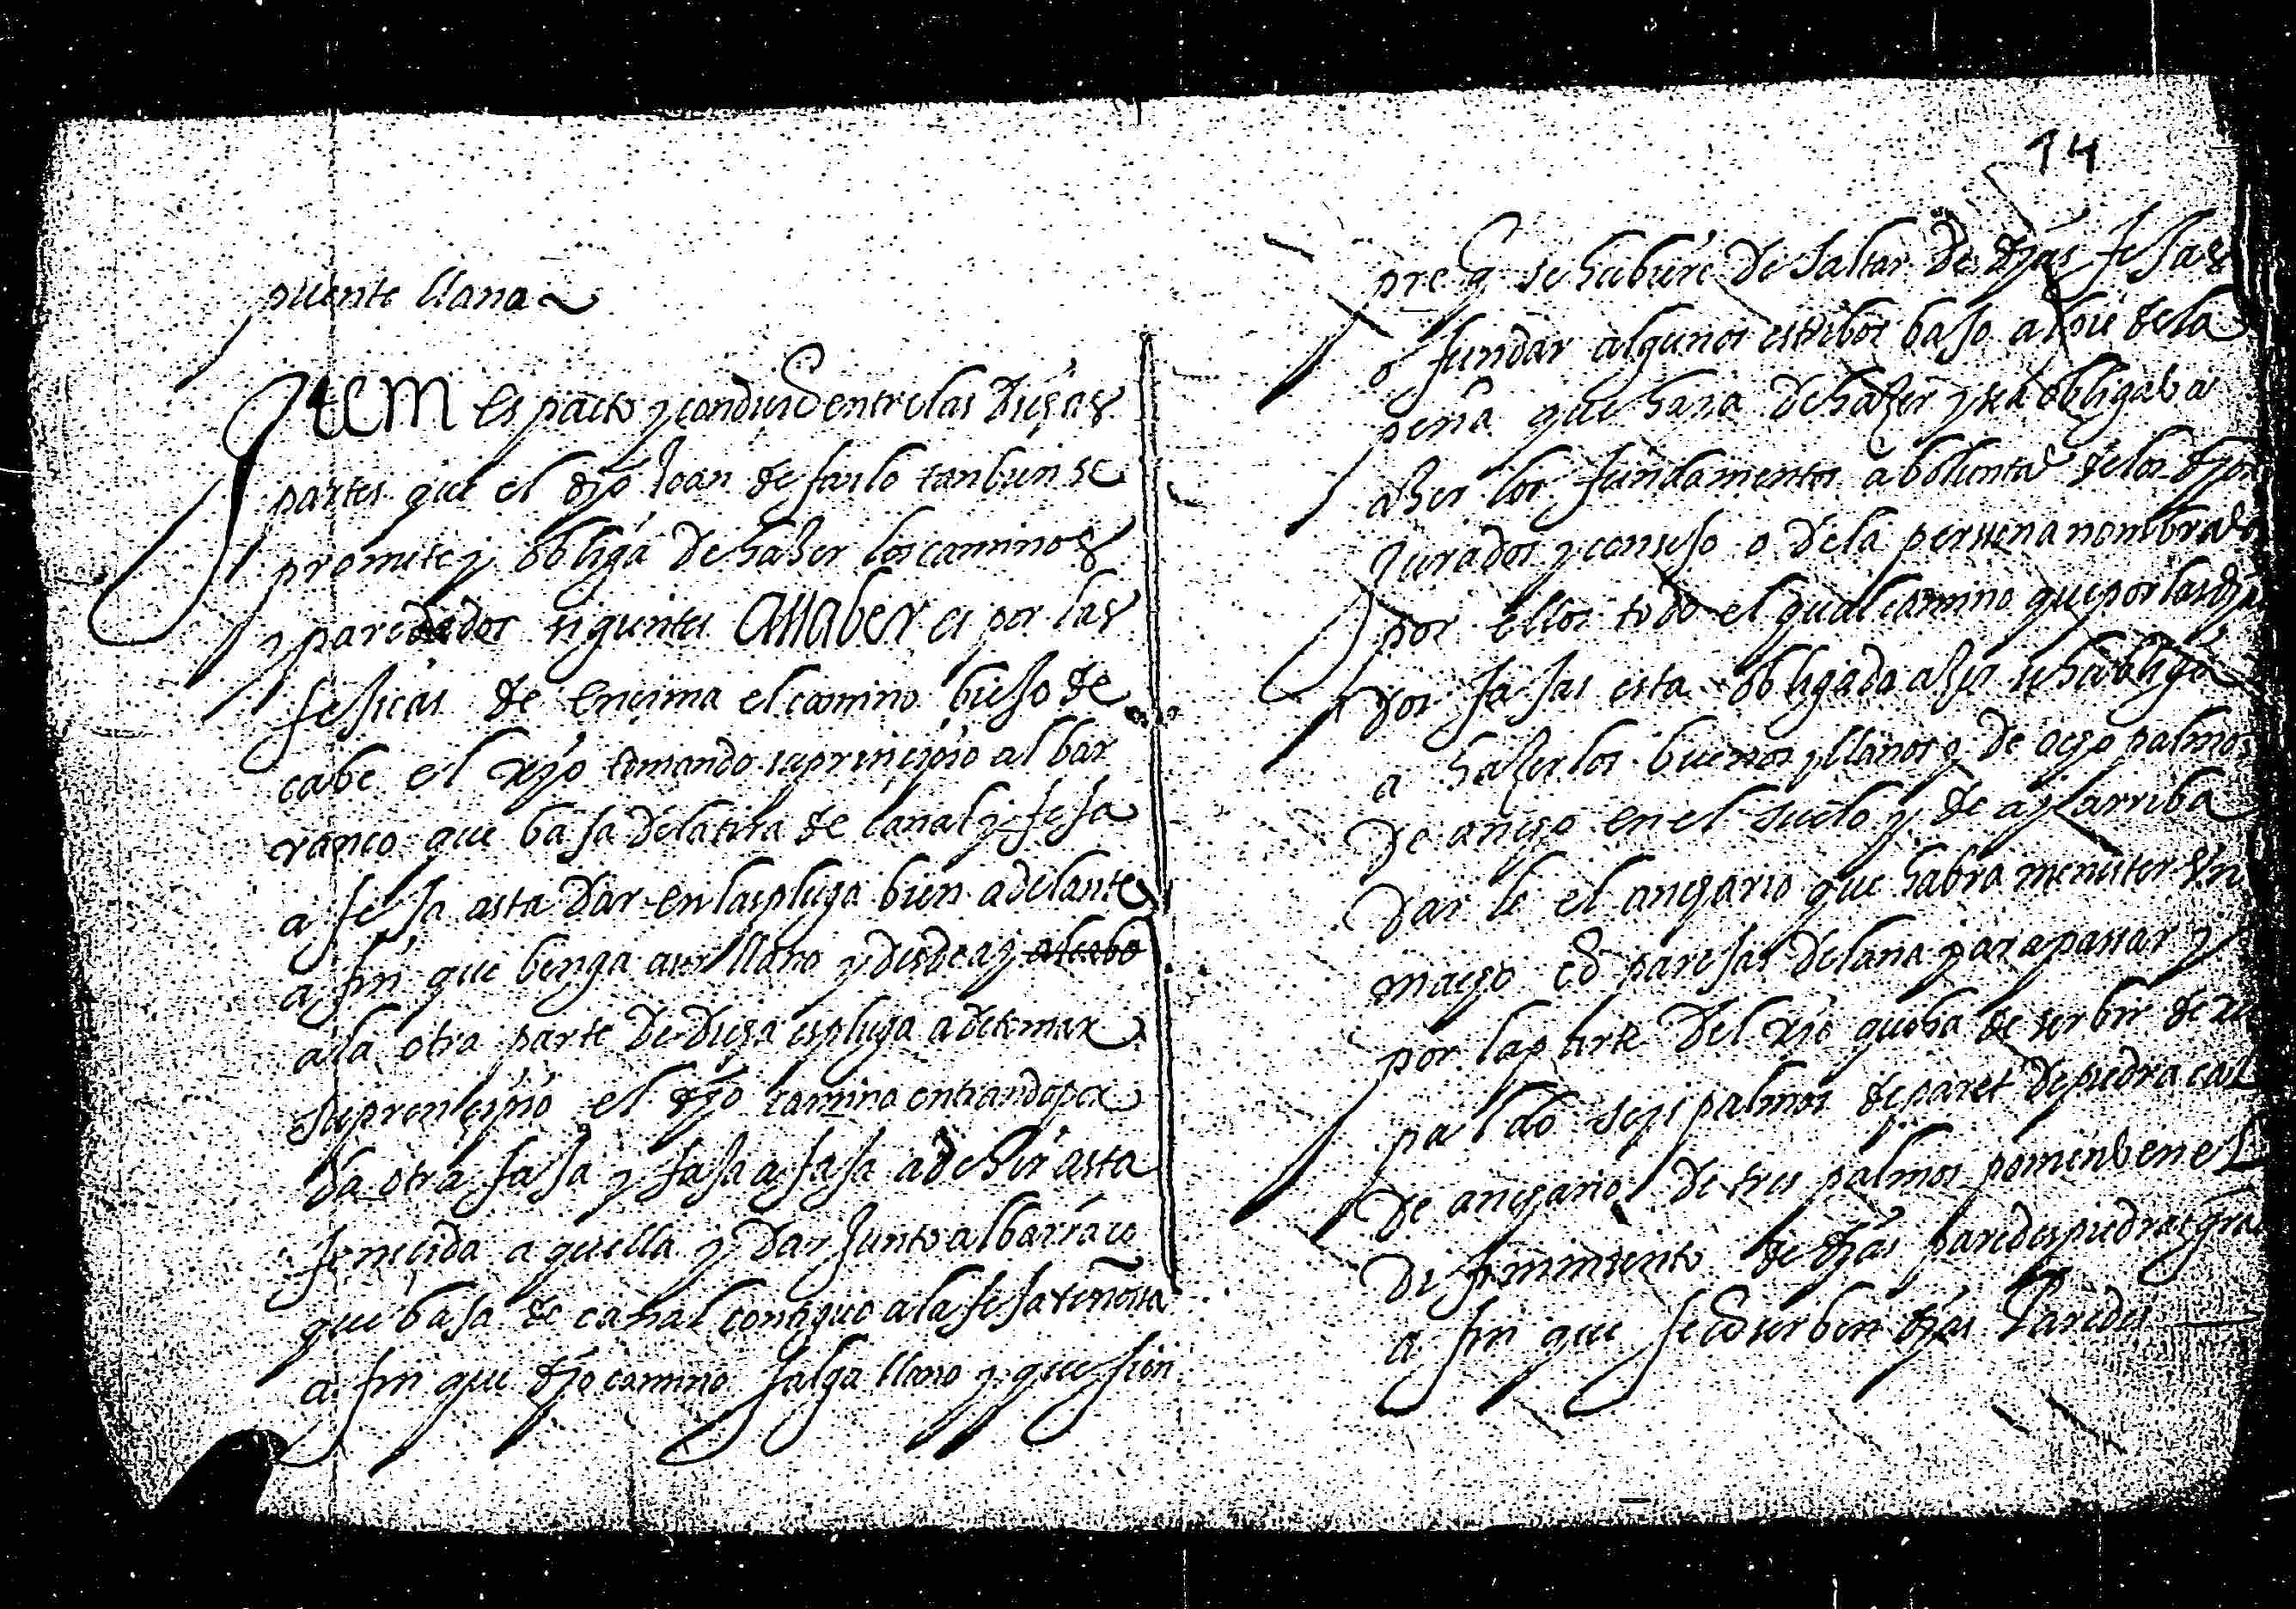 puente llana
Item es pacto y condicio entre las dichas
partes que el dho Joan de sarlo tanbien se
promete y obliga de haser los caminos
y paredados siguientes Assaber es por las
fesicas de encima el camino biejo de
cabe el rijo tomando su principio al bar
ranco que basa de la tira de canal y fesa
a fesa asta dar en laspluga bien adelante
a fin que benga aser llano y desde ay al cabo
a la otra parte de dicha espluga a de tomar
su prencipio el dho camino entrando por
la otra fasa y fasa a fasa a de hir asta
fenecida aquella y dar Junto al barraco
que basa de canal contiguo a la fesa
a fin que dho camino salga llano y que sien
14
pre q se hubiere de saltar de dhas fesas
o fundar algunos estribos baso al pie de la
peña que haia de hazer y sea obligado a
aser los fundamentos a boluntad de los dhos
Jurados y consejo o de la persona nombrada
por ellos todo el qual camino que por las dhas
fasas esta obligado aser se obliga
a hazerlos buenos y llanos y de ocho palmos
de ancho en el suelo y de ay arriba
dar le el anchario que habra menester un
macho co paresas de lana para passar y
por la parte del rio que ha de serbir de
paldo seys palmos de paret de piedra
de anchario de tres palmos poniendo en el
de finimiento de dhas paredes piedras
a fin que se coserben dhas Paredes